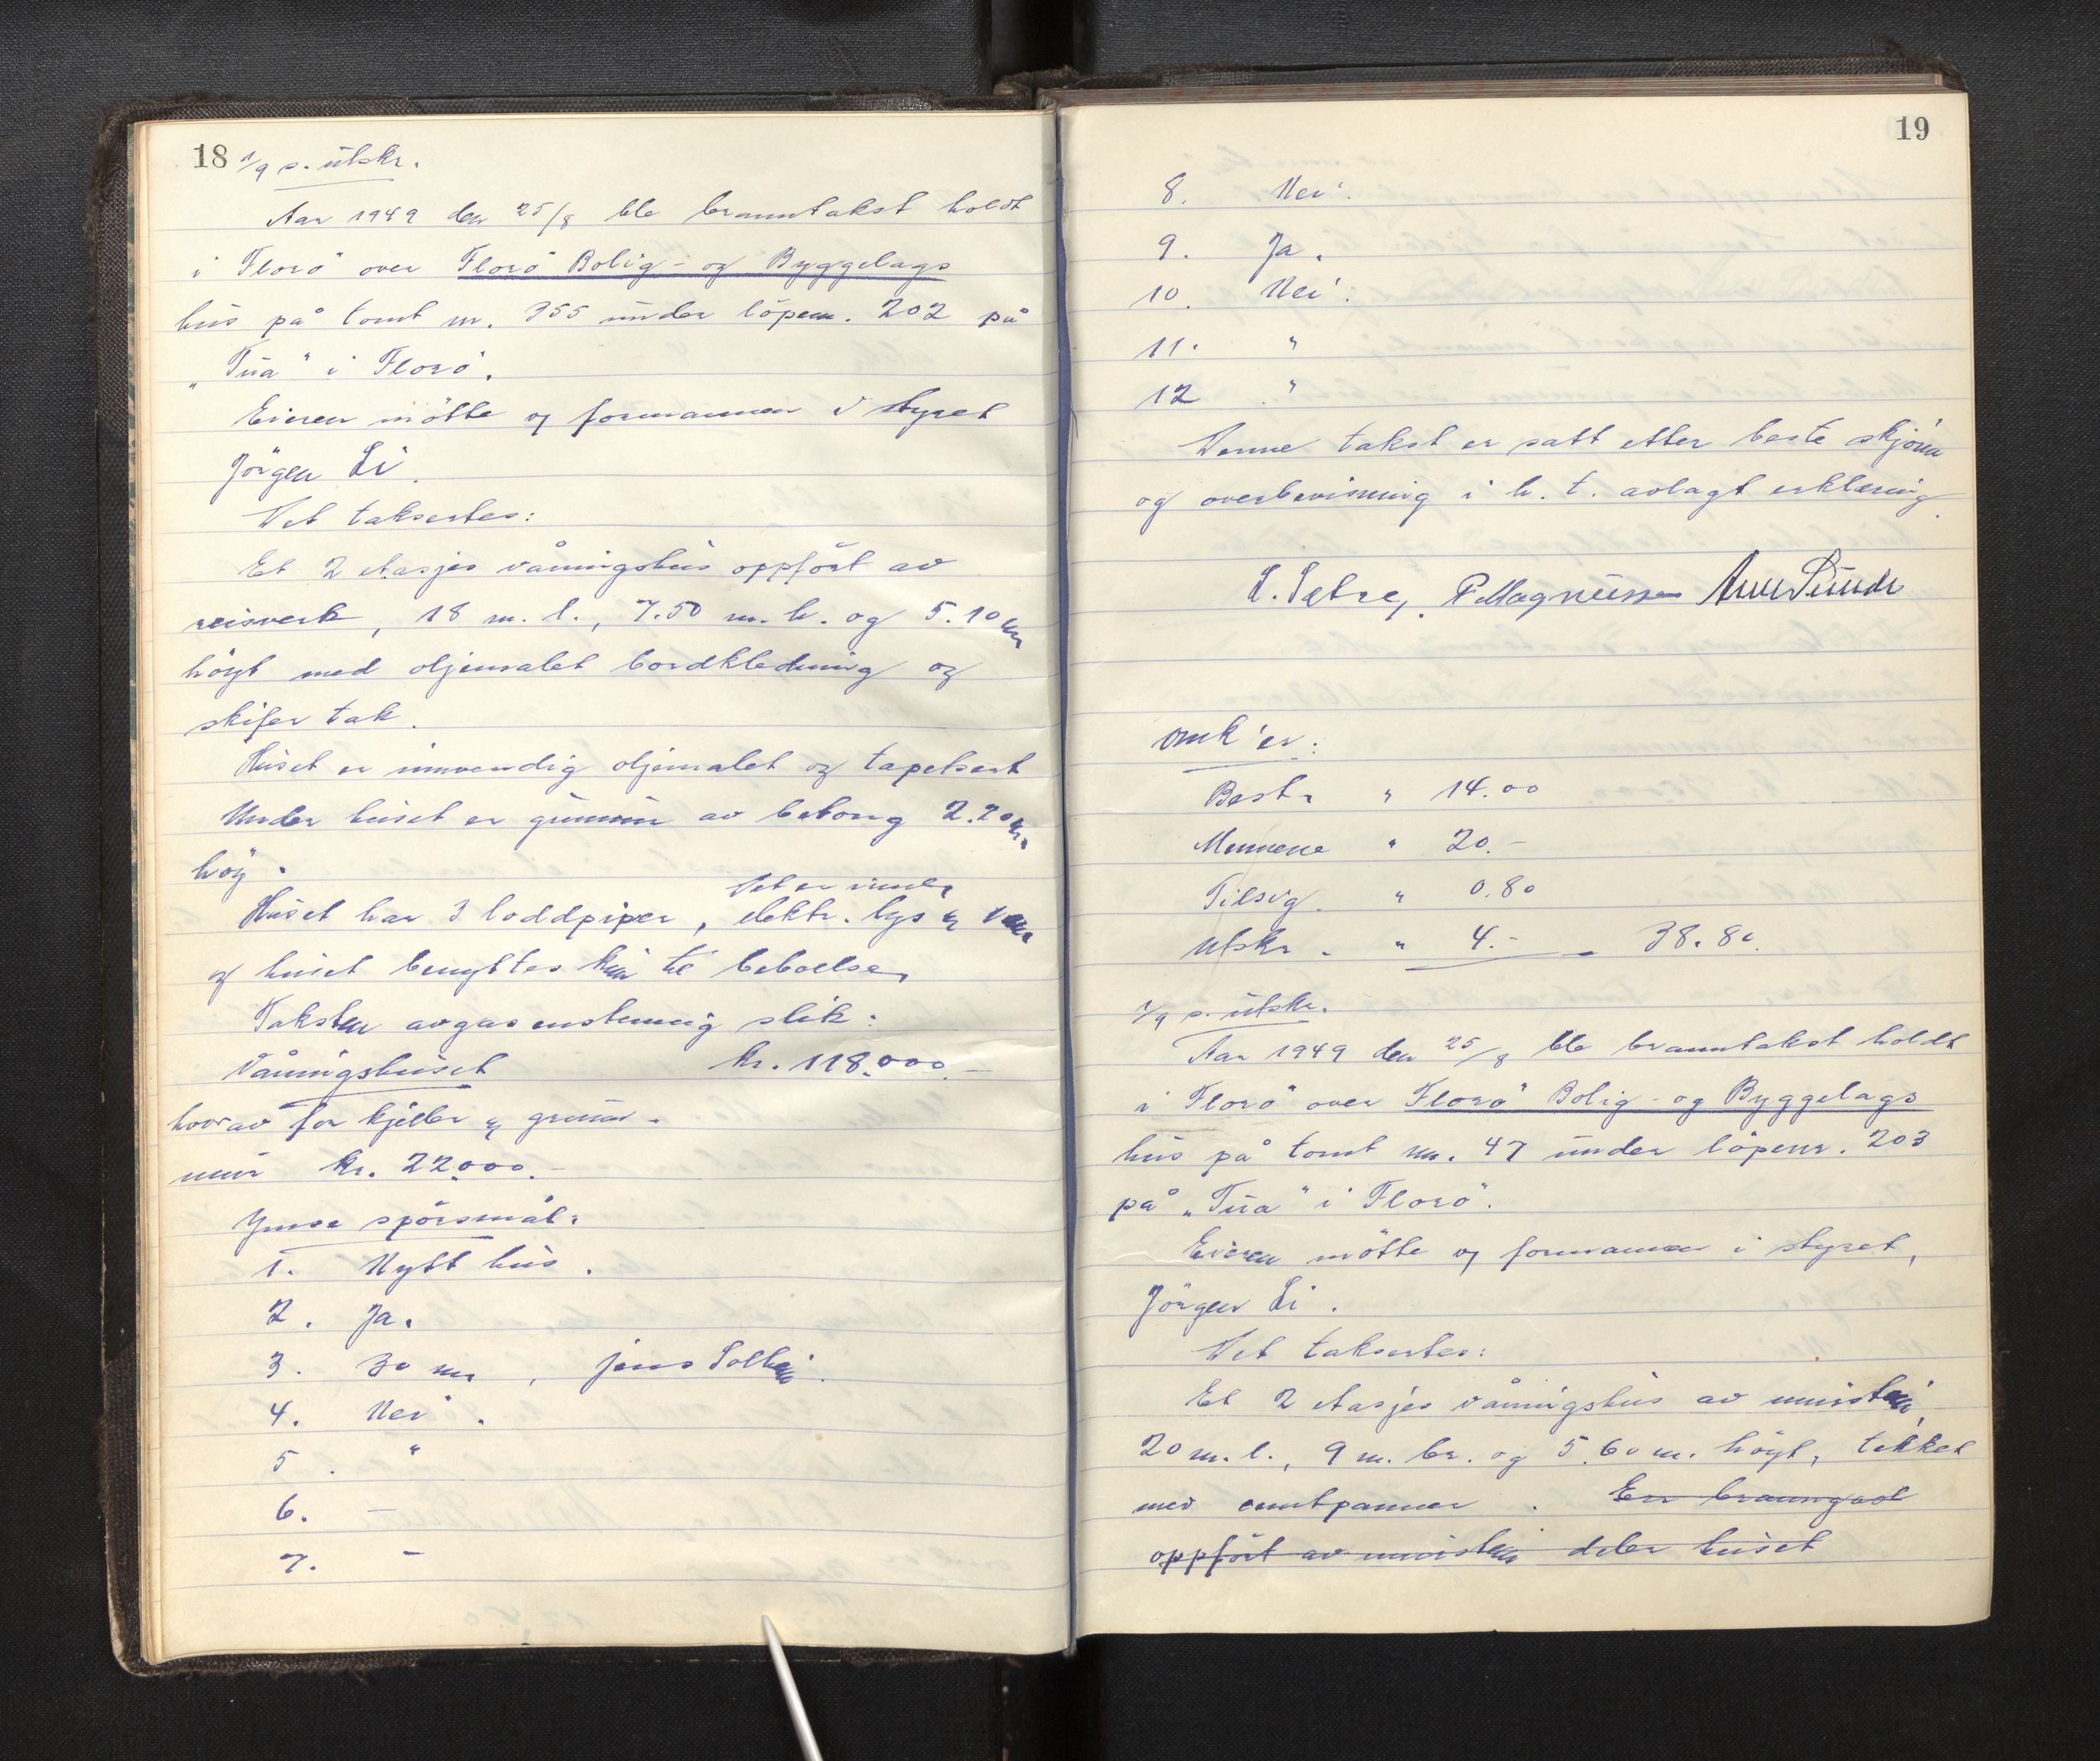 18 1/9 s. utskr.
Aar 1949 den 25/8 ble branntakst holdt
i Florö over Florö Bolig- og Byggelags
hus på tomt nr. 355 under löpenr. 202 på
"Tua" i Florö.
Eieren mötte og formannen i styret
Jörgen Li.
Det taksertes:
Et 2 etasjes våningshus oppfört av
reisverk, 18 m. l., 7.50 m. b. og 5.10 m
höyt med oljemalet bordkledning og
skifer tak.
Huset er innvendig oljemalet og tapetsert
Under huset er grunnmur av betong 2.20 m.
höy.
Det er innl.
Huset har 3 loddpiper, elektr. lys og vann
og huset benyttes kun til beboelse.
Taksten avgas enstemmig slik:
Våningshuset kr. 118.000.-
hvorav for kjeller og grunn-
mur kr. 22.000.-
Ymse spörsmål:
1. Nytt hus.
2. Ja.
3. 30 m, Jens Solheim.
4. Nei.
5. "
6. -
7. -
19
8. Nei.
9. Ja.
10. Nei.
11. "
12 "
Denne takst er satt etter beste skjönn
og overbevisning i h. t. avlagt erklæring.
S. Sætre, P Magnussen Arne Sunde
Omk'er:
Best. " 14.00
Mennene " 20.-
Tilsig. " 0.80
Utskr. " 4.- - 38.80.
1/9 s. utskr.
Aar 1949 den 25/8 ble branntakst holdt
i Florö over Florö Bolig- og Byggelags
hus på tomt nr. 47 under löpenr. 203
på "Tua" i Florö.
Eieren mötte og formannen i styret,
Jörgen Li.
Det taksertes:
Et 2 etasjes våningshus av murstein,
20 m. l., 9 m. br. og 5.60 m. höyt, tekket
med cemtpanner. En branngavl
oppfört av murstein deler huset